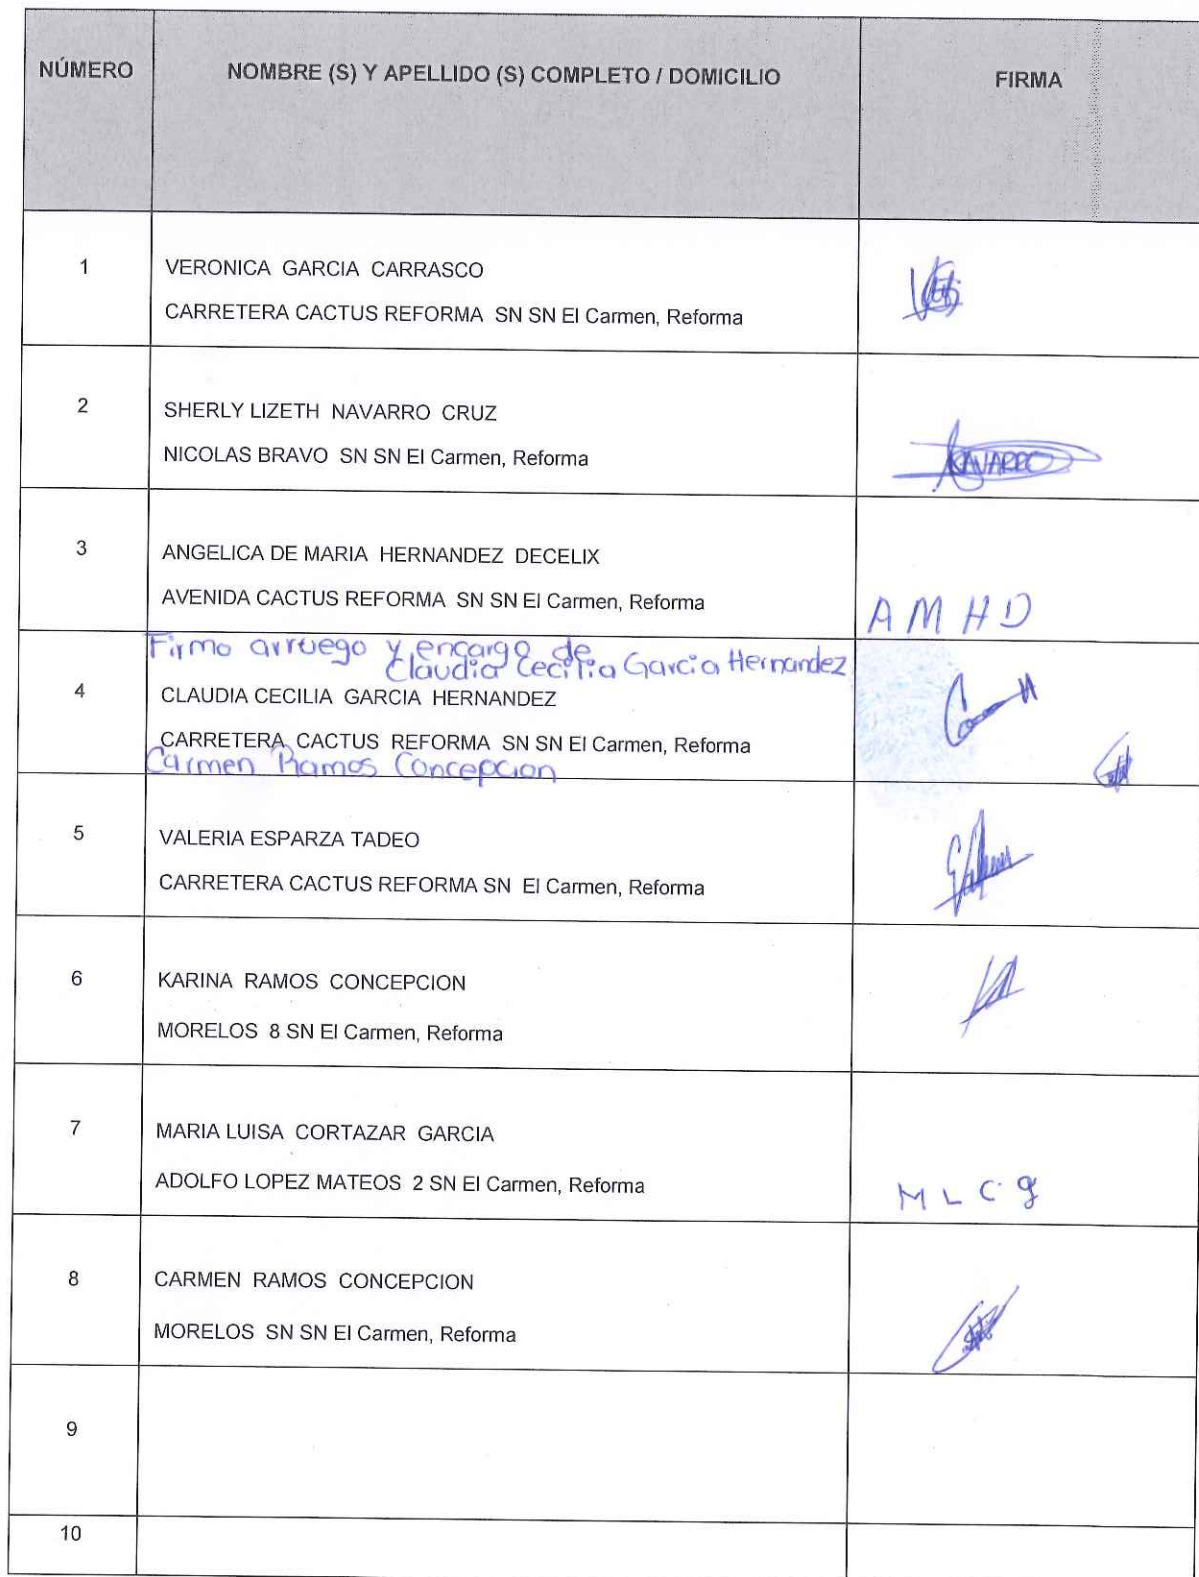 NÚMERO
NOMBRE (S) Y APELLIDO (S) COMPLETO / DOMICILIO
FIRMA
1
VERONICA GARCIA CARRASCO
CARRETERA CACTUS REFORMA SN SN El Carmen, Reforma
2
SHERLY LIZETH NAVARRO CRUZ
NICOLAS BRAVO SN SN El Carmen, Reforma
NAVARRO
3
ANGELICA DE MARIA HERNANDEZ DECELIX
AVENIDA CACTUS REFORMA SN SN El Carmen, Reforma
A M H D
Firmo arruego y encargo de
Claudia Cecilia Garcia Hernandez
4
CLAUDIA CECILIA GARCIA HERNANDEZ
CARRETERA CACTUS REFORMA SN SN El Carmen, Reforma
Carmen Ramos Concepcion
5
VALERIA ESPARZA TADEO
CARRETERA CACTUS REFORMA SN El Carmen, Reforma
6
KARINA RAMOS CONCEPCION
MORELOS 8 SN El Carmen, Reforma
7
MARIA LUISA CORTAZAR GARCIA
ADOLFO LOPEZ MATEOS 2 SN El Carmen, Reforma
M L C g
8
CARMEN RAMOS CONCEPCION
MORELOS SN SN El Carmen, Reforma
9
10